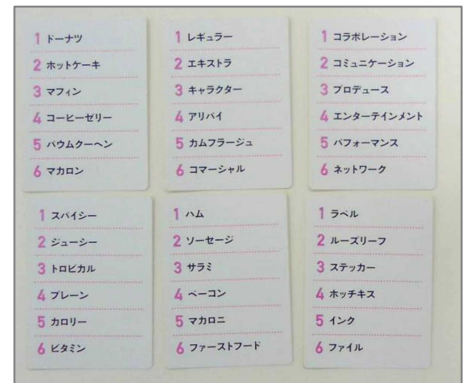 1 ドーナツ
2 ホットケーキ
3 マフィン
4 コーヒーゼリー
5 バウムクーヘン
6 マカロン
1 レギュラー
2 エキストラ
3 キャラクター
4 アリバイ
5 カムフラージュ
6 コマーシャル
1 コラボレーション
2 コミュニケーション
3 プロデュース
4 エンターテインメント
5 パフォーマンス
6 ネットワーク
1 スパイシー
2 ジューシー
3 トロピカル
4 プレーン
5 カロリー
6 ビタミン
1 ハム
2 ソーセージ
3 サラミ
4 ベーコン
5 マカロニ
6 ファーストフード
1 ラベル
2 ルーズリーフ
3 ステッカー
4 ホッチキス
5 インク
6 ファイル